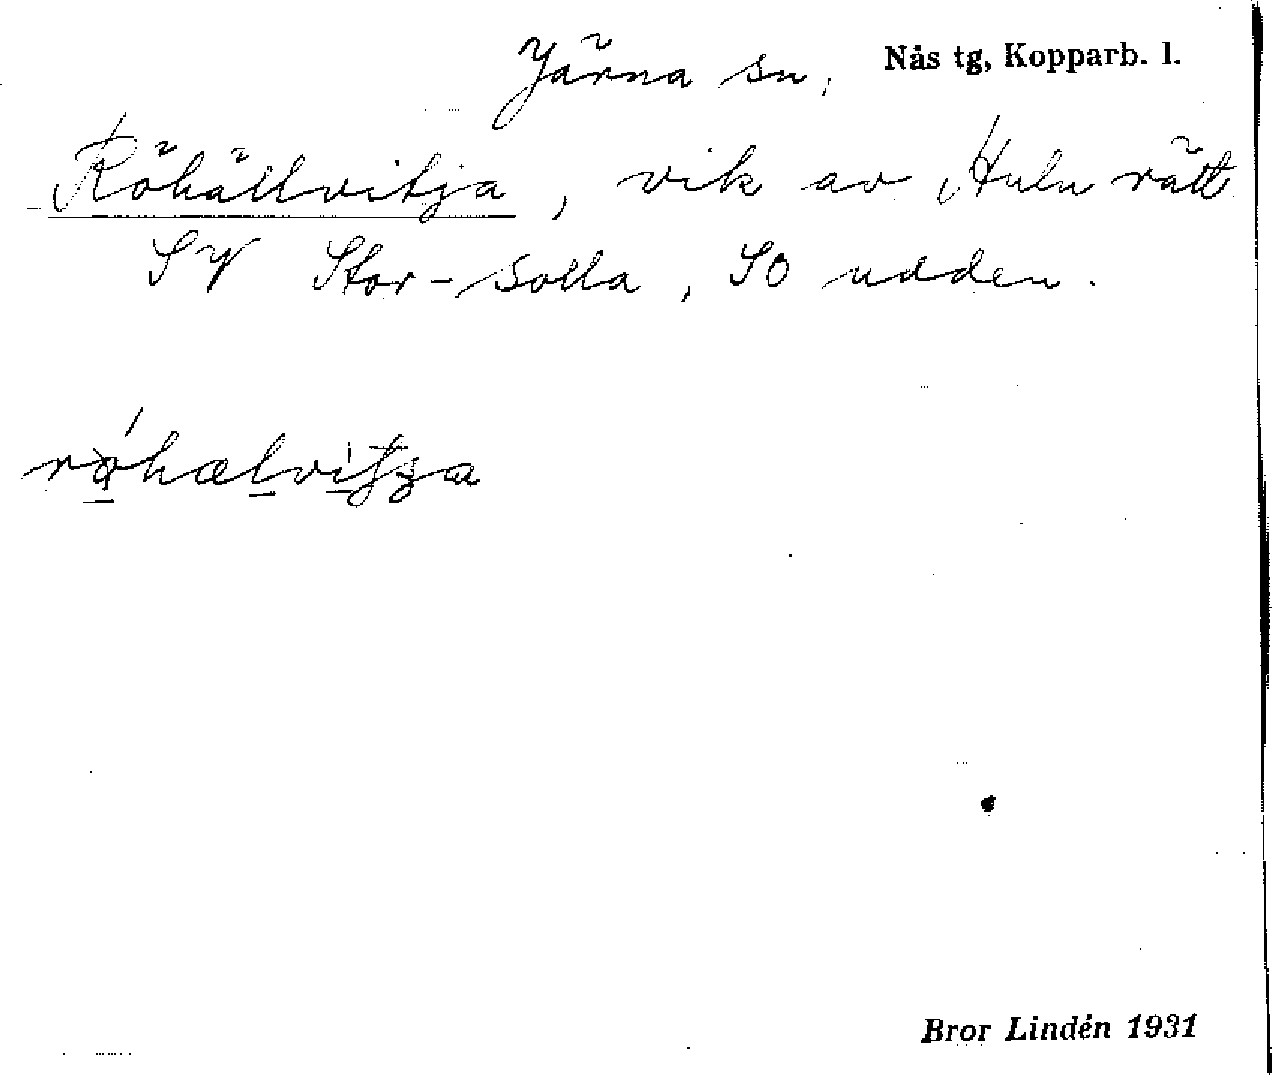 Järna sn, Nås tg, Kopparb. l.
Röhällvitja, vik av Huln rätt
SV Stor-solla, SO udden.
Bror Lindén 1931